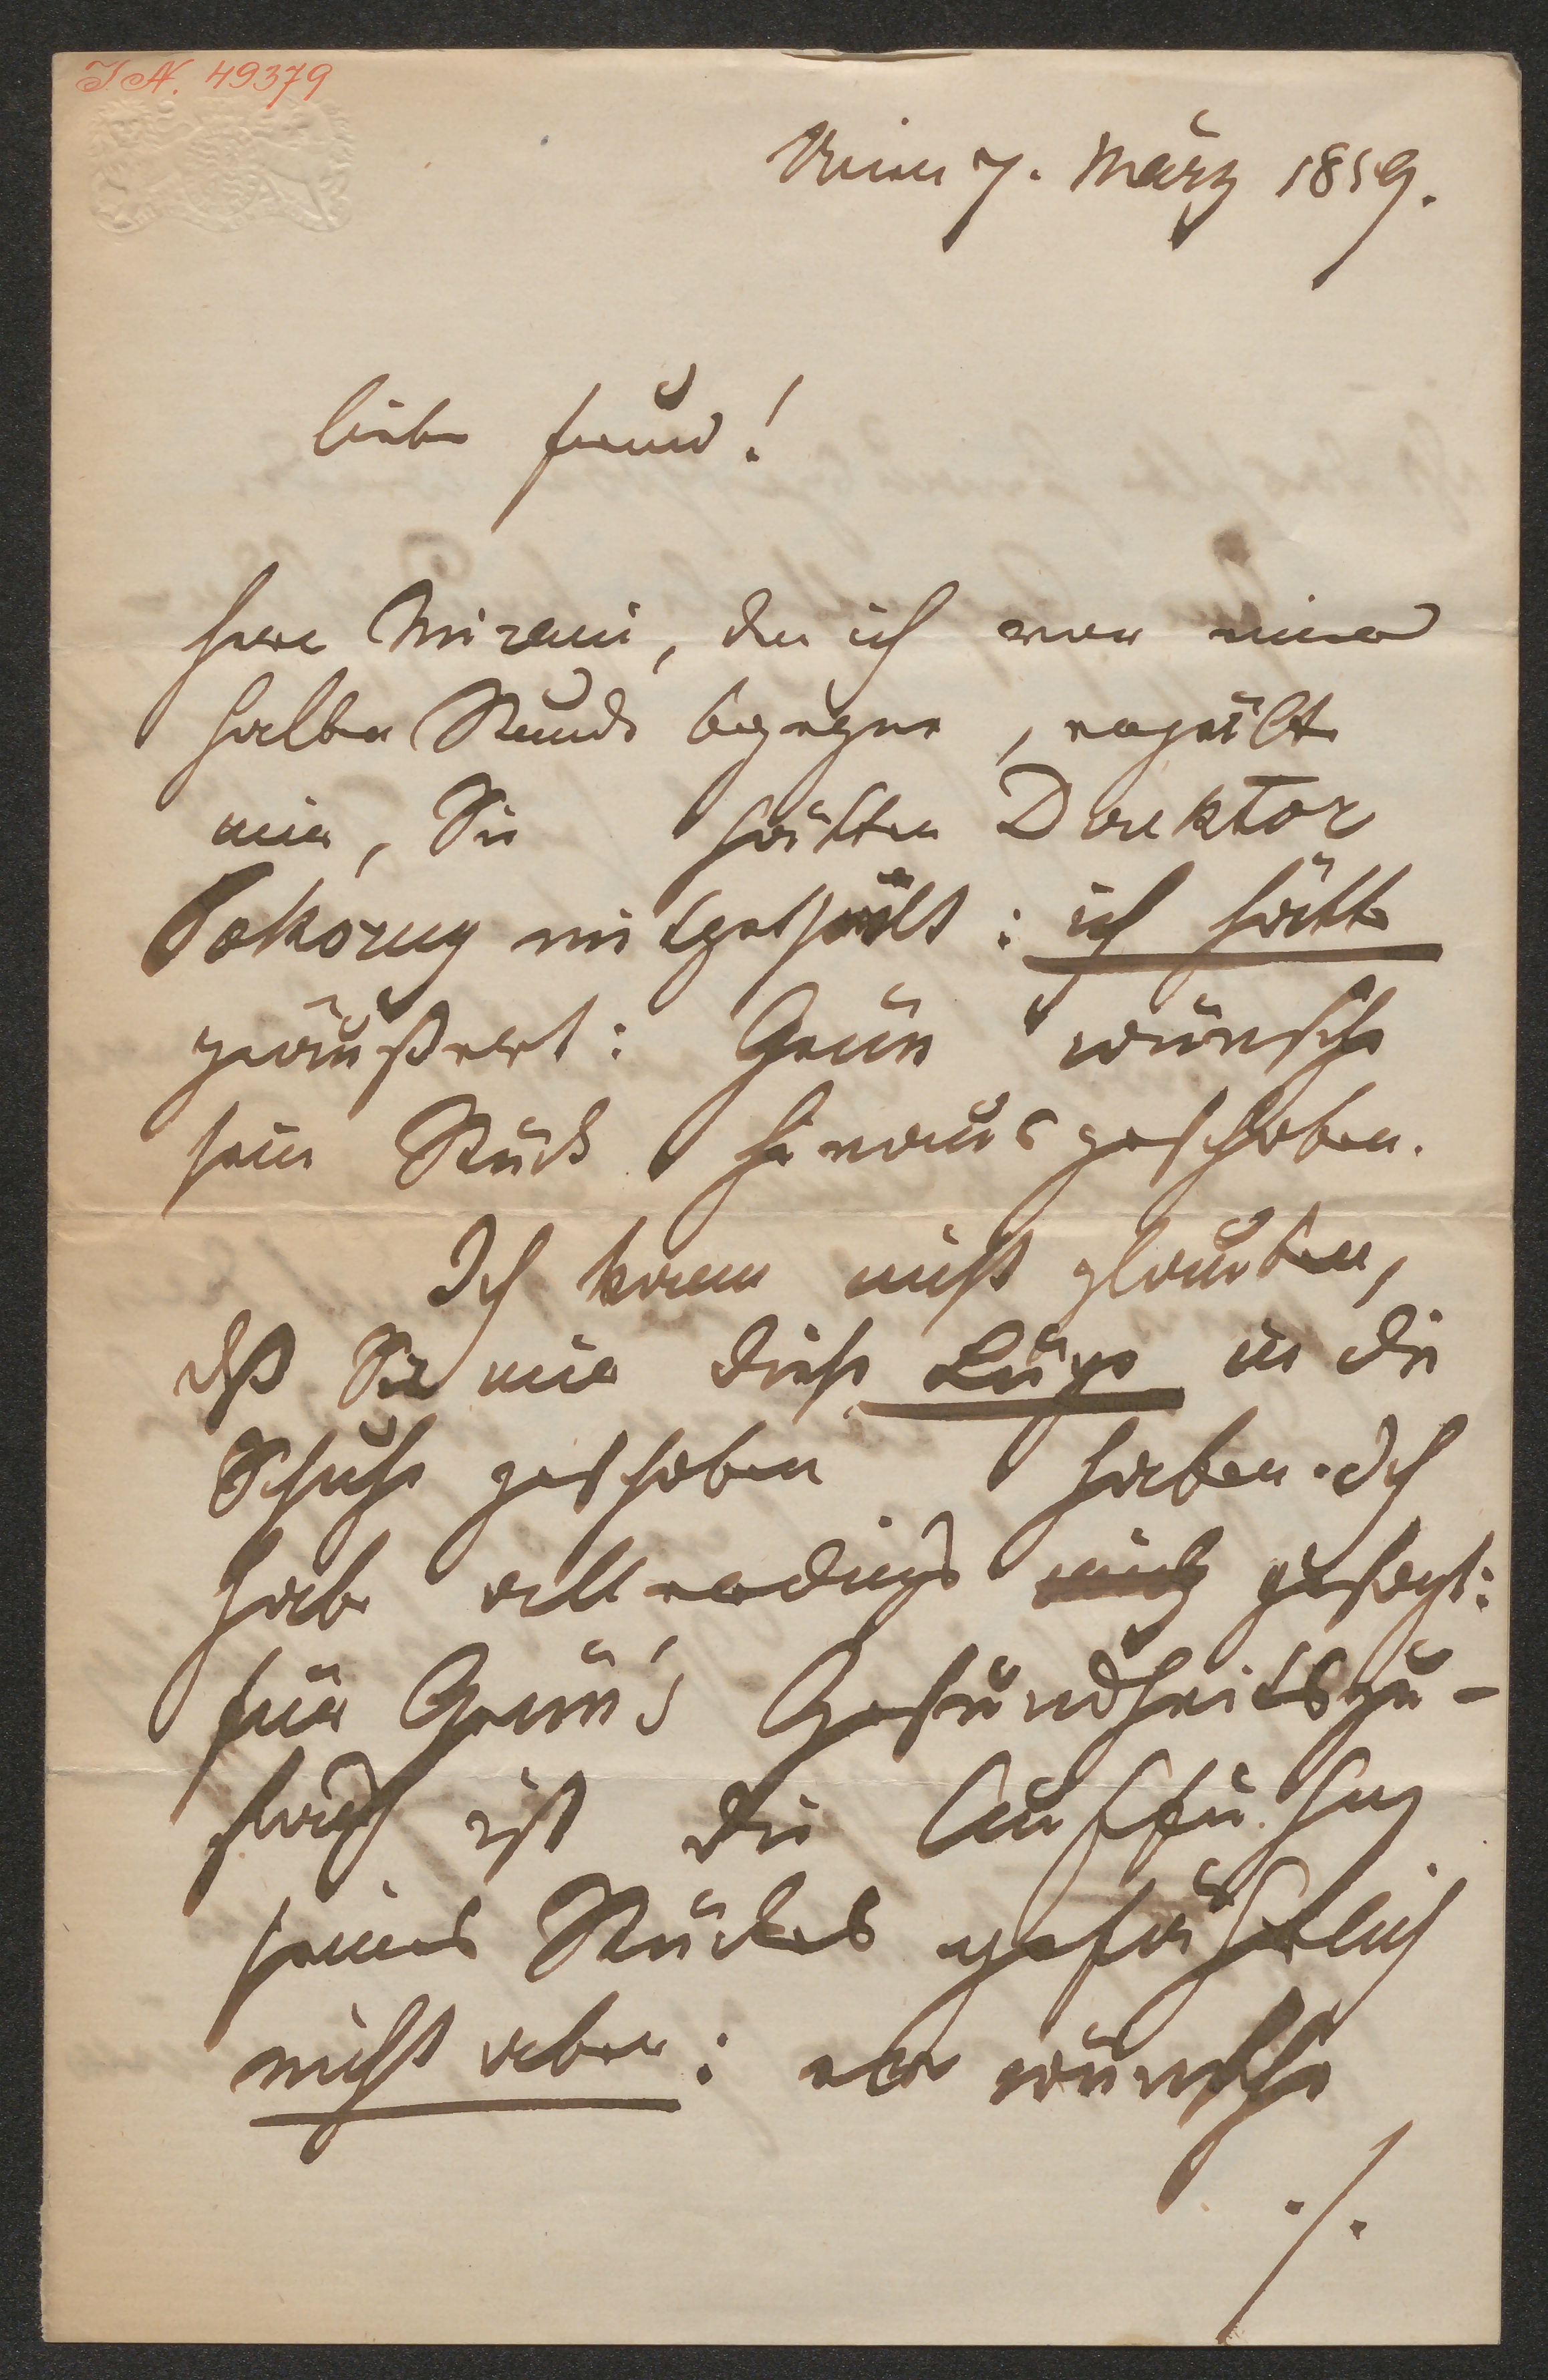 I.N. 49379
Wien 7. März 1859.
Lieber Freund!
Herr Mirani, den ich vor einer
halben Stunde begegne, erzählt
mir, Sie hätten Direktor
Pokorny mitgetheilt: ich hätte
geäußert: Grün wünsche
sein Stück hinausgeschoben.
Ich kann nicht glauben,
daß Sie mir diese Lüge in die
Schuhe geschoben haben. Ich
habe allerdings gesagt:
für Grün's Gesundheitszu-
stand ist die Aufführung
seines Stückes gefährlich
nicht aber: er wünsche
./.